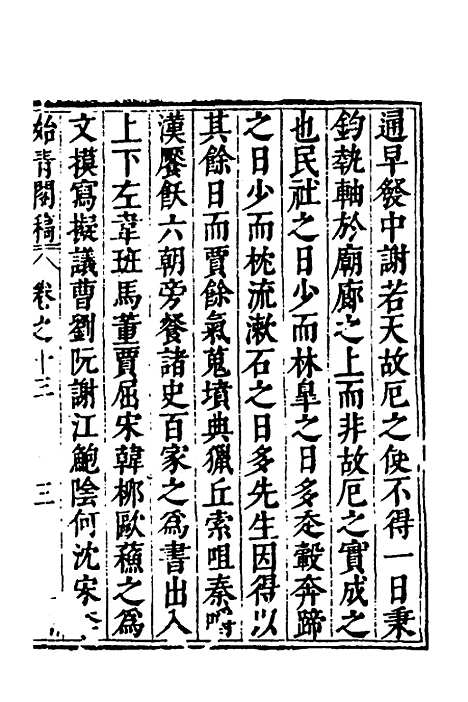 通早發中謝若天故厄之使不得一日秉
鈞執軸於廟廊之上而非故厄之實成之
也民社之日少而林皐之日多委轂奔蹄
之日少而枕流漱石之日多先生因得以
其餘日而賈餘氣蒐墳典獵丘索咀秦
漢饜飫六朝旁餐諸史百家之爲書出入
上下左韋班馬董賈屈宋韓柳歐蘇之爲
文摸寫擬議曹劉阮謝江鮑陰何沈宋
始青閣稿 卷之十三 三